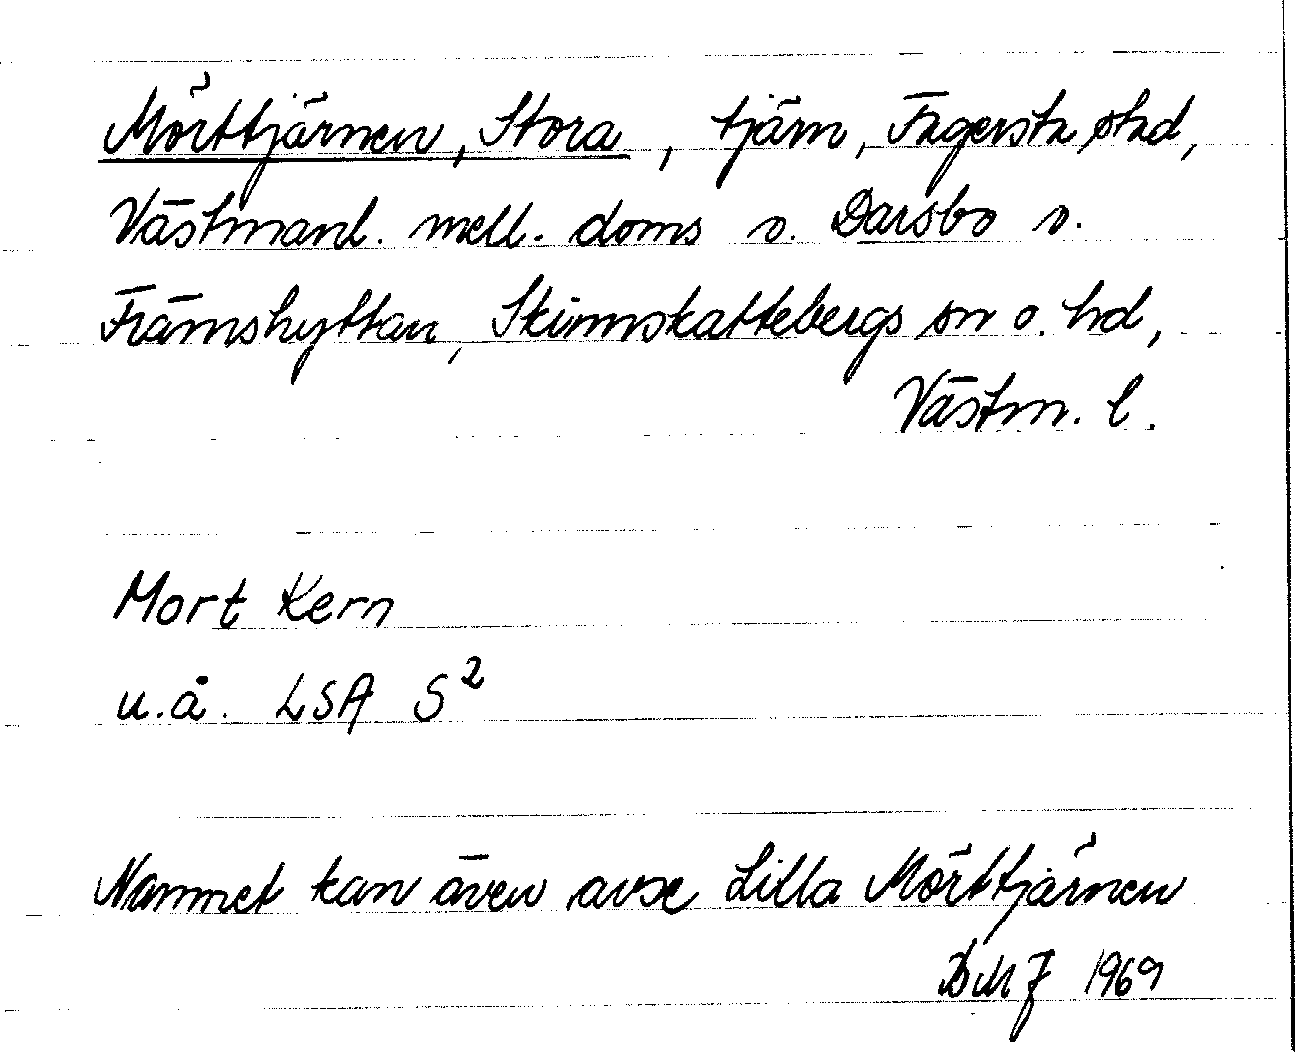 Mörttjärnen, Stora, tjärn, Fagersta stad,
Västmanl. mell. doms o. Darsbo o.
Främshyttan, Skinnskattebergs sn o. hd,
Västm. l.
Mort Kern
u.å. LSA S²
Namnet kan även avse Lilla Mörttjärnen
BMJ 1969